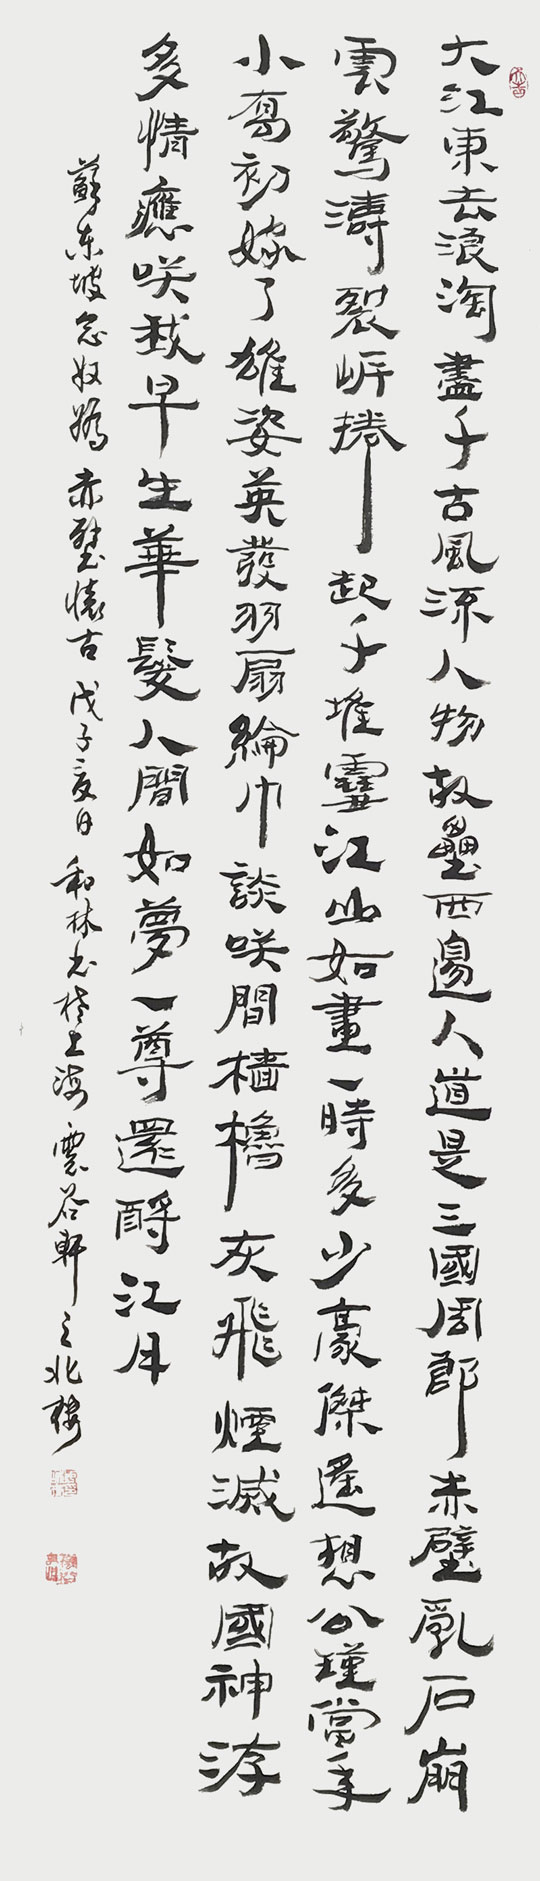 大江東去浪淘盡千古風流人物故壘西邊人道是三國周郎赤壁亂石崩
雲驚濤裂岸捲起千堆雪江山如畫一時多少豪傑遙想公瑾當年
小喬初嫁了雄姿英發羽扇綸巾談咲間檣櫓灰飛煙滅故國神游
多情應咲我早生華髮人間如夢一尊還酹江月
蘇東坡念奴嬌赤壁懷古戊子夏日和林书於上海雲谷軒之北樓